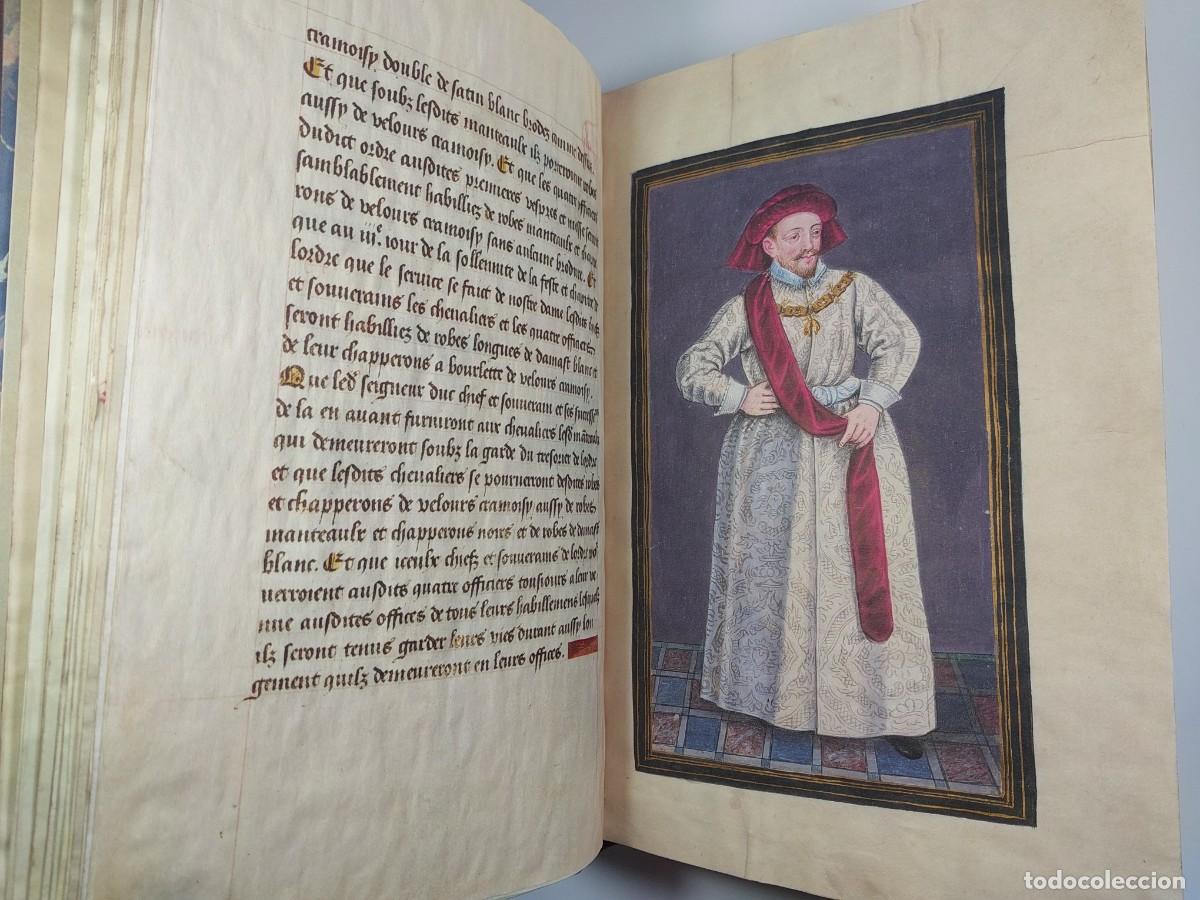 cramoisy double de satin blanc brodez comme dessus
Et que soubz lesdits manteaulx ilz porteront robes
aussy de velours cramoisy. Et que les quatre officiers
dudict ordre ausdites premieres vespres et messe seront
samblablement habilliez de robes manteaulx et chappe
rons de velours cramoisy sans aulcune brodure. Et
que au iiie. iour de la sollennite de la feste et chapitre de
lordre que le seruice se fait de nostre dame lesdits
et souuerains les cheualiers et les quatre officiers
seront habilliez de robes longues de damast blanc et
de leur chapperons a bourlette de velours cramoisy.
Que led seigneur duc chief et souuerain et ses
de la en auant furniront aux cheualiers lesd
qui demeureront soubz la garde du tresorier de lordre
et que lesdits cheualiers se pourueront desdites robes
et chapperons de velours cramoisy aussy de robes
manteaulx et chapperons noirs et de robes de damast
blanc. Et que iceulx chiefz et souuerains de lordre po
uerroient ausdits quatre officiers tousiours a leur ve
nue ausdites offices de tous leurs habillemens lesquelz
ilz seront tenus garder leurs vies durant aussy lon
gement quilz demeureront en leurs offices.
todocoleccion